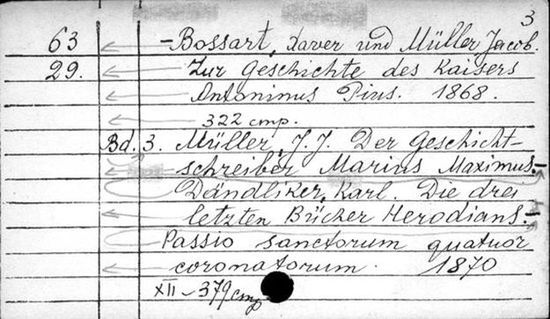 3
63 – Bossart, Xaver und Müller Jacob.
29. Zur Geschichte des Kaisers
Antoninus Pius. 1868.
322 стр.
Bd. 3. Müller, J. J. Der Geschicht-
schreiber Marius Maximus. –
Dändliker, Karl. Die drei
letzten Bücher Herodians. –
Passio sanctorum quatuor
coronatorum. 1870
XII – 379 стр